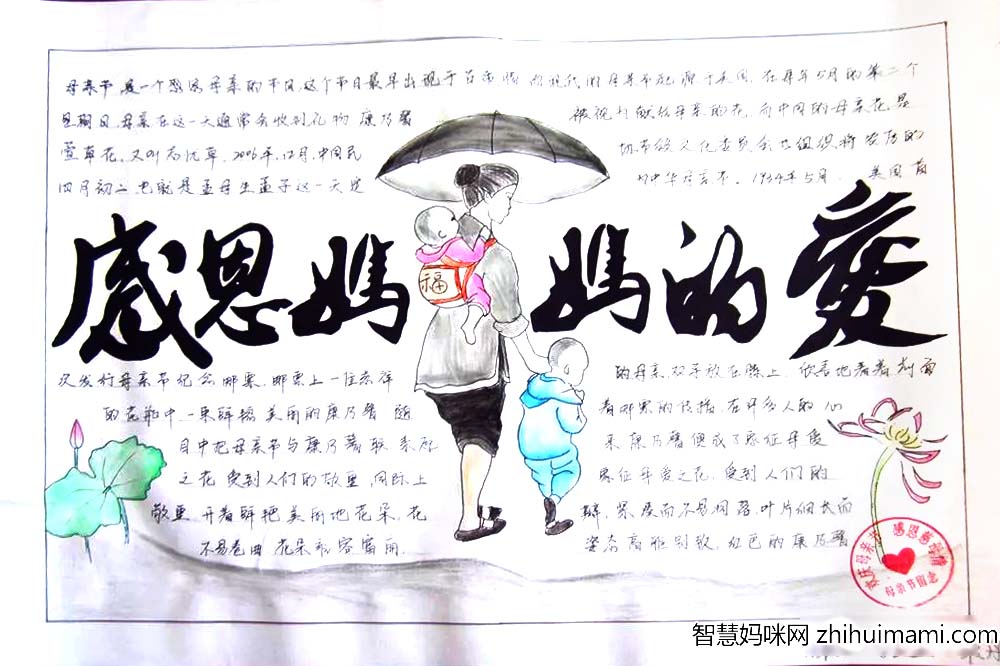 母亲节是一个感恩母亲的节日,这个节日最早出现于古希腊 而现代的母亲节起源于美国,在每年5月的第二个
星期日,母亲在这一天通常会收到礼物 康乃馨 被视为献给母亲的花,而中国的母亲花是
萱草花,又叫忘忧草,2006年,12月,中国民 协节 文化委员会 组织将 农历的
四月初二也就是孟母生孟子这一天定 为中华母亲节。1934年5月, 美国首
感恩妈妈的爱
次发行母亲节纪念邮票,邮票上一位慈祥 的母亲,双手放在膝上,欣喜地看着前面
的花瓶中一束鲜艳美丽的康乃馨 随 着邮票的传播,在许多人的心
目中把母亲节与康乃馨联系起 来康乃馨便成了象征母爱
之花 受到人们的敬重,同际上 象征母爱之花,受到人们的
敬重,开着鲜艳美丽地花朵,花 瓣,紧 而不易凋落,叶片细长而
不易卷曲 花朵 , 姿态高雅别致,红色的康乃馨
福
欢庆母亲节 感恩慈母情
母亲节留念
智慧妈咪网 zhihuimami.com